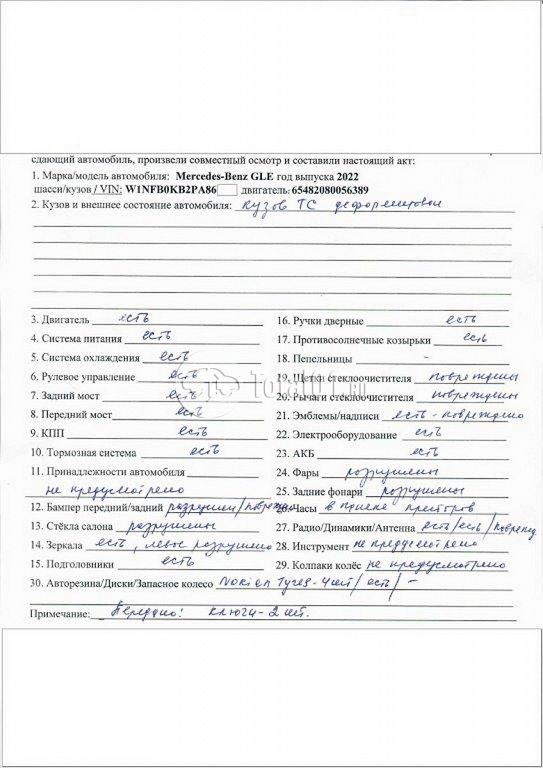 сдающий автомобиль, произвели совместный осмотр и составили настоящий акт:
1. Марка/модель автомобиля: Mercedes-Benz GLE год выпуска 2022
шасси/кузов / VIN: W1NFB0KB2PA86 двигатель: 65482080056389
2. Кузов и внешнее состояние автомобиля: кузов ТС деформирован
3. Двигатель есть
4. Система питания есть
5. Система охлаждения есть
6. Рулевое управление есть
7. Задний мост есть
8. Передний мост есть
9. КПП есть
10. Тормозная система есть
11. Принадлежности автомобиля
не предусмотрено
12. Бампер передний/задний разрушен/поврежден
13. Стёкла салона разрушены
14. Зеркала есть, левое разрушено
15. Подголовники есть
16. Ручки дверные есть
17. Противосолнечные козырьки есть
18. Пепельницы -
19. Щетки стеклоочистителя повреждены
20. Рычаги стеклоочистителя повреждены
21. Эмблемы/надписи есть - повреждено
22. Электрооборудование есть
23. АКБ есть
24. Фары разрушены
25. Задние фонари разрушены
26. Часы в приборе
27. Радио/Динамики/Антенна есть/есть/поврежд
28. Инструмент не предусмотрено
29. Колпаки колёс не предусмотрено
30. Авторезина/Диски/Запасное колесо Nokian Tyres - 4шт/есть/-
Примечание: Передано: ключи - 2 шт.